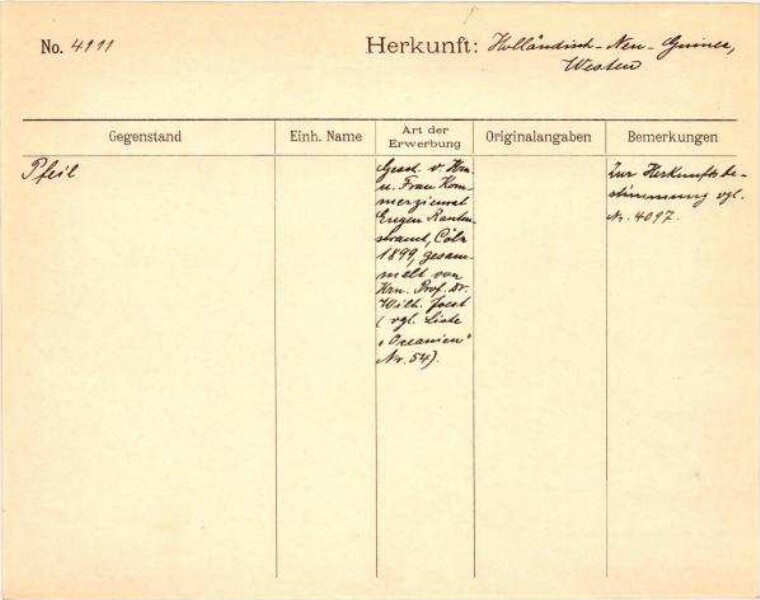 No. 4111
Herkunft: Holländisch-Neu-Guinea,
Westen
Gegenstand
Einh. Name
Art der
Erwerbung
Originalangaben
Bemerkungen
Pfeil
Gesch. v. Hrn.
u. Frau Kom-
merzienrat
Eugen Rauten-
strauch, Cöln
1899, gesam-
melt von
Hrn. Prof. Dr.
Wilh. Joest
(vgl. Liste
"Oceanien"
Nr. 54).
Zur Herkunftsbe-
stimmung vgl.
Nr. 4097.